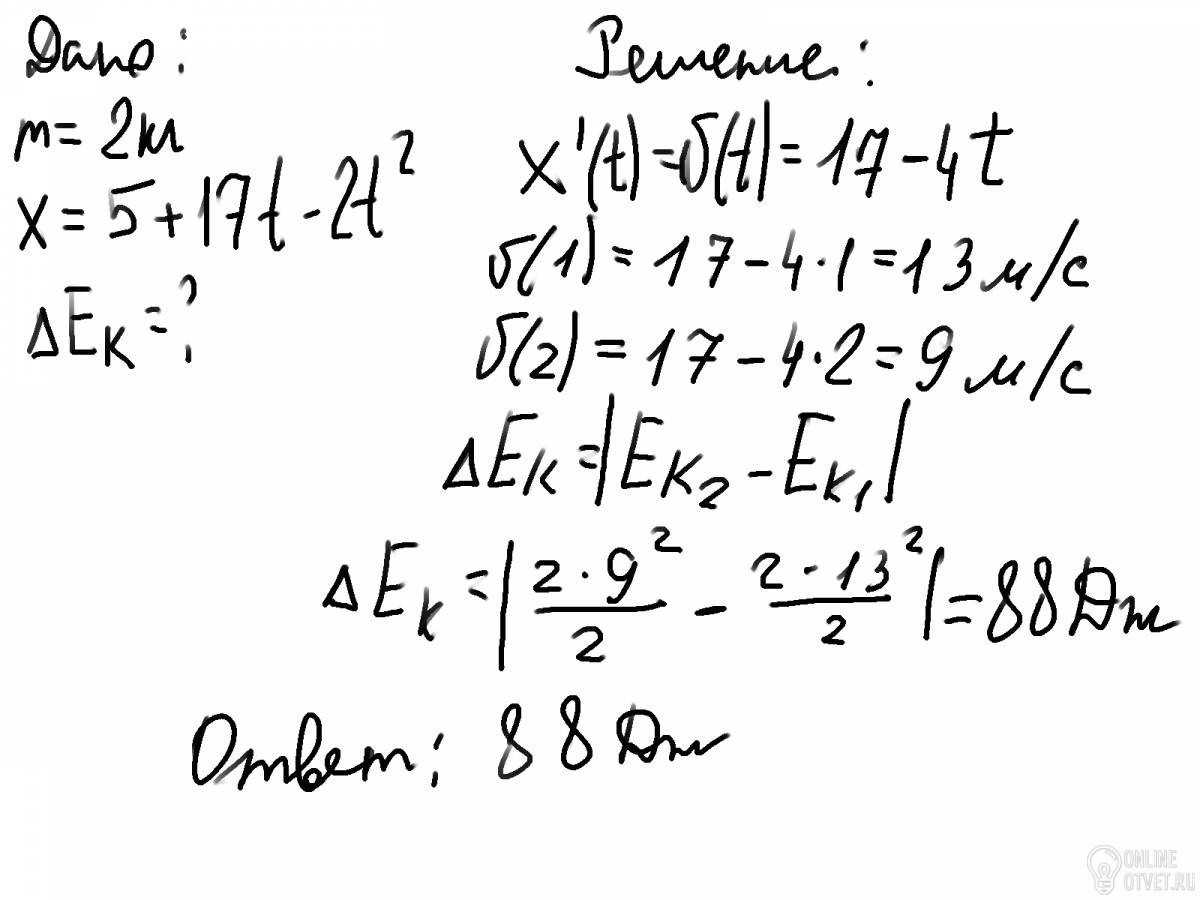 Дано:
m = 2кг
x = 5 + 17t - 2t²
ΔEк = ?
Решение:
x'(t) = υ(t) = 17 - 4t
υ(1) = 17 - 4·1 = 13 м/с
υ(2) = 17 - 4·2 = 9 м/с
ΔEк = |Eк₂ - Eк₁|
ΔEк = |2·9²/2 - 2·13²/2| = 88 Дж
Ответ: 88 Дж
ONLINE
OTVET.RU